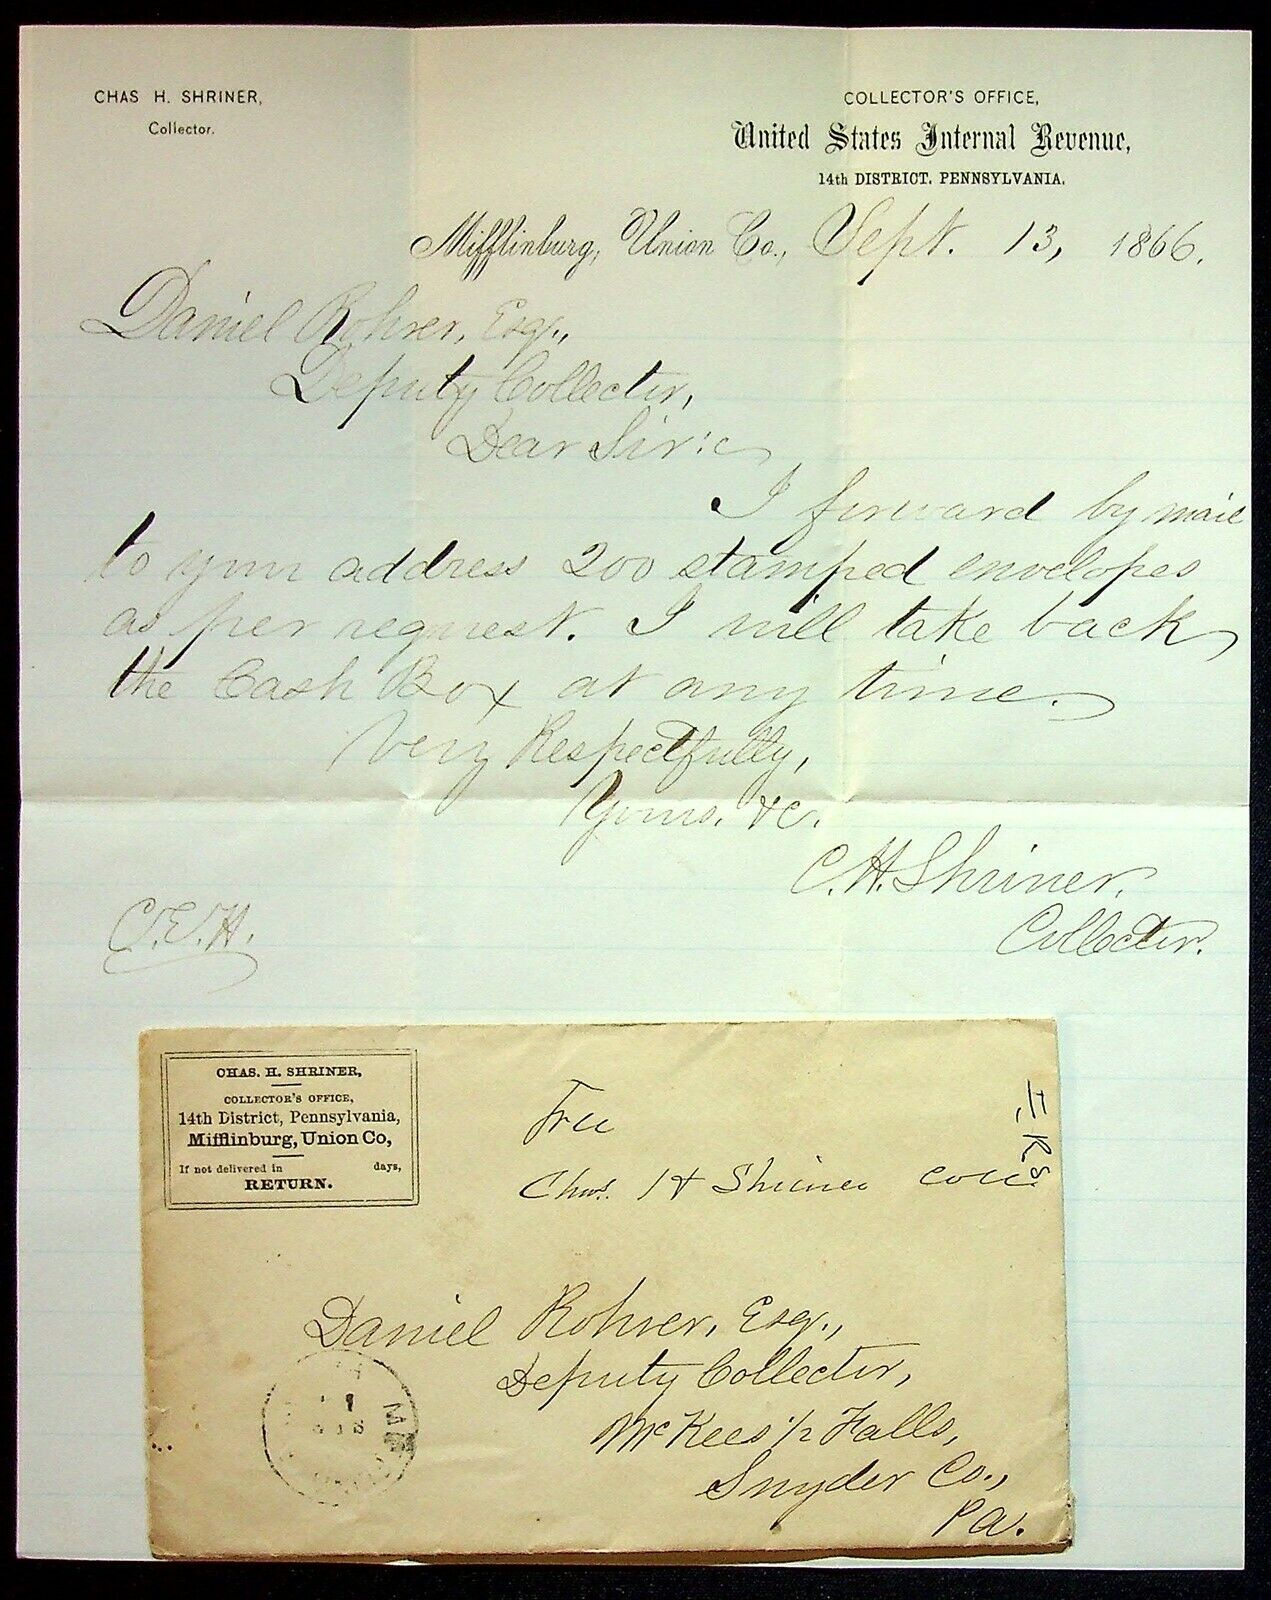 CHAS H. SHRINER,
Collector.
COLLECTOR'S OFFICE,
United States Internal Revenue,
14th DISTRICT, PENNSYLVANIA.
Mifflinburg, Union Co., Sept. 13, 1866.
Daniel Rohrer, Esqr.,
Deputy Collector,
Dear Sir:
I forward by mail
to your address 200 stamped envelopes
as per request. I will take back
the Cash Box at any time.
Very Respectfully,
Yours, &c.
C. H. Shriner,
Collector.
C. E. H.
CHAS. H. SHRINER,
COLLECTOR'S OFFICE,
14th District, Pennsylvania,
Mifflinburg, Union Co,
If not delivered in days,
RETURN.
Free
Chas. H Shriner Coll
I. R. S
Daniel Rohrer, Esqr.,
Deputy Collector,
McKees 1/2 Falls,
Snyder Co.,
Pa.